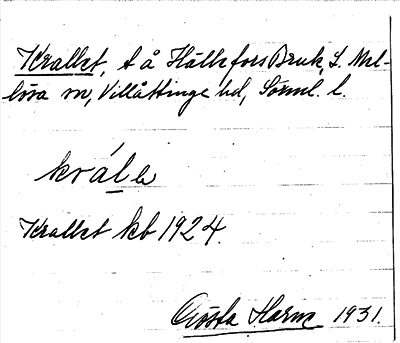 Krallet, t å Hälleforsbruk, L. Mel-
lösa sn, Villåttinge hd, Sörml. l.
král e
Krallet kb 1924.
Gösta Harm 1931.